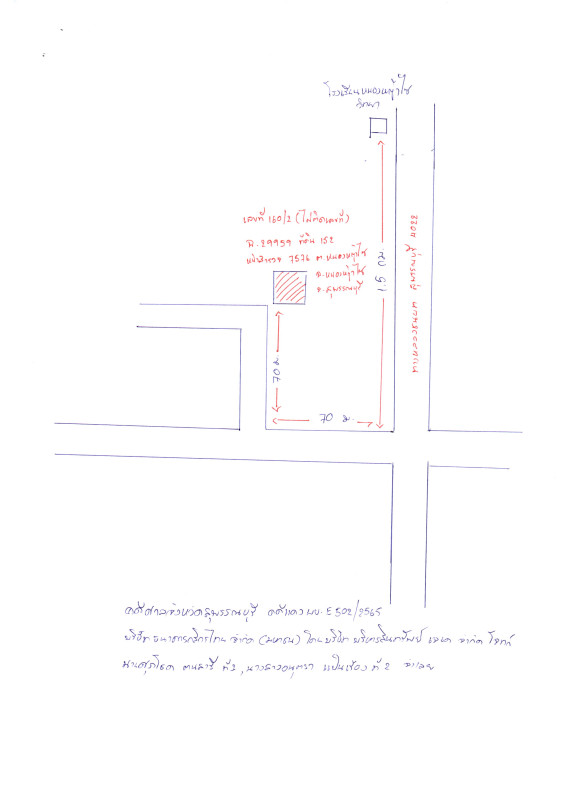 โรงเรียนหนองหญ้าไซ
วิทยา
เลขที่ 160/2 (ไม่ติดเลขที่)
ฉ.29959 ที่ดิน 152
หน้าสำรวจ 7576 ต.หนองหญ้าไซ
อ.หนองหญ้าไซ
จ.สุพรรณบุรี
1.5 กม
70 ม
70 ม.
ทางหลวง 3502
คดีศาลจังหวัดสุพรรณบุรี คดีแดง ผบ.E 502/2565
บริษัท ธนาคารกสิกรไทย จำกัด (มหาชน) โดย บริษัท บริหารสินทรัพย์ เจเค จำกัด โจทก์
นายศุภโชค ที่ 1, นางสาวอนุตรา แป้นเขียว ที่ 2 จำเลย